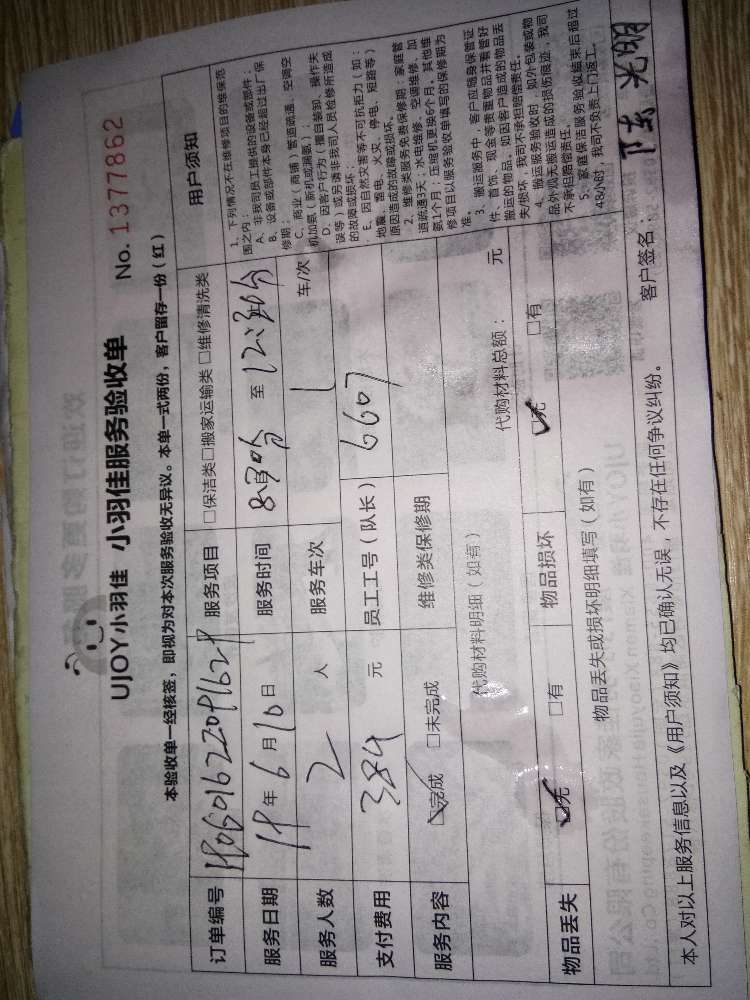 UJOY小羽佳 小羽佳服务验收单 No. 1377862
本验收单一经核签，即视为对本次服务验收无异议。本单一式两份，客户留存一份（红）
订单编号 服务项目 □保洁类□搬家运输类 □维修清洗类
服务日期 19 年 6 月 10 日 服务时间 至 12:30分
服务人数 2 人 服务车次 1 车/次
支付费用 384 元 员工工号（队长） 6607
服务内容 ☑完成 □未完成 维修类保修期
代购材料明细（如有） 代购材料总额： 元
物品丢失 ☑无 □有 物品损坏 ☑无 □有
物品丢失或损坏明细填写（如有）
用户须知
1、下列情况不在维修项目的维保范
围之内：
A、非我司员工提供的设备或部件；
B、设备或部件本身已经超过出厂保
修期；
C、商业（商铺）管道疏通、空调空
机加氨（新机或漏氨）；
D、因客户行为（擅自装卸、操作失
误等）或另请非我司人员检修所造成
的故障或损坏；
E、因自然灾害等不可抗拒力（如：
地震、雷电、火灾、停电、短路等）
原因造成的故障或损坏。
2、维修类服务免费保修期：家庭管
道疏通3天；水电维修、空调维修、加
氨1个月；压缩机更换6个月，其他维
修项目以服务验收单填写的保修期为
准。
3、搬运服务中，客户应随身保管证
件、首饰、现金等贵重物品并看管好
搬运的物品。如因客户造成的物品丢
失/损坏，我司不承担赔偿责任。
4、搬运服务验收时，如外包装或物
品外观无搬运造成的损伤痕迹，我司
不承担赔偿责任。
5、家庭保洁服务验收结束后超过
48小时，我司不负责上门返工。
本人对以上服务信息以及《用户须知》均已确认无误，不存在任何争议纠纷。 客户签名： 陈光明